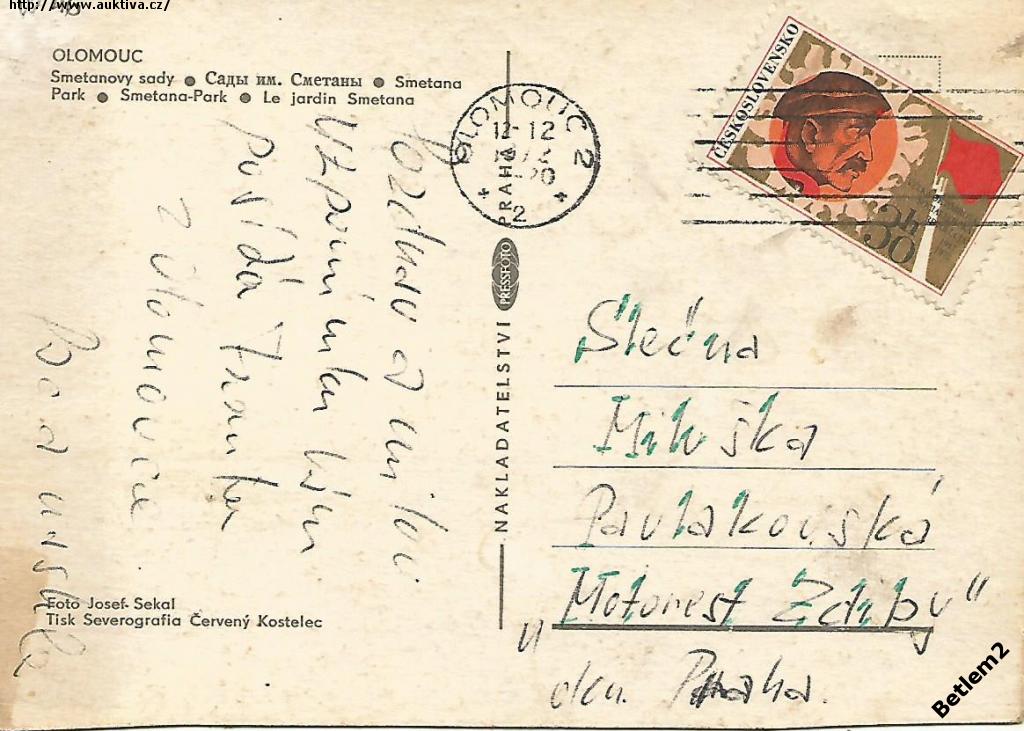 http://www.auktiva.cz/
OLOMOUC
Smetanovy sady ● Сады им. Сметаны ● Smetana
Park ● Smetana-Park ● Le jardin Smetana
OLOMOUC 2
12-12
-20
2
ČESKOSLOVENSKO
30h
Pozdrav a
Vzpomínku
Posílá
z Olomouce
PRAHA
PRESSFOTO
NAKLADATELSTVÍ
Slečna
Miluška
Pavlakovská
"Motorest Zdiby"
okr. Praha.
Foto Josef Sekal
Tisk Severografia Červený Kostelec
Betlem2